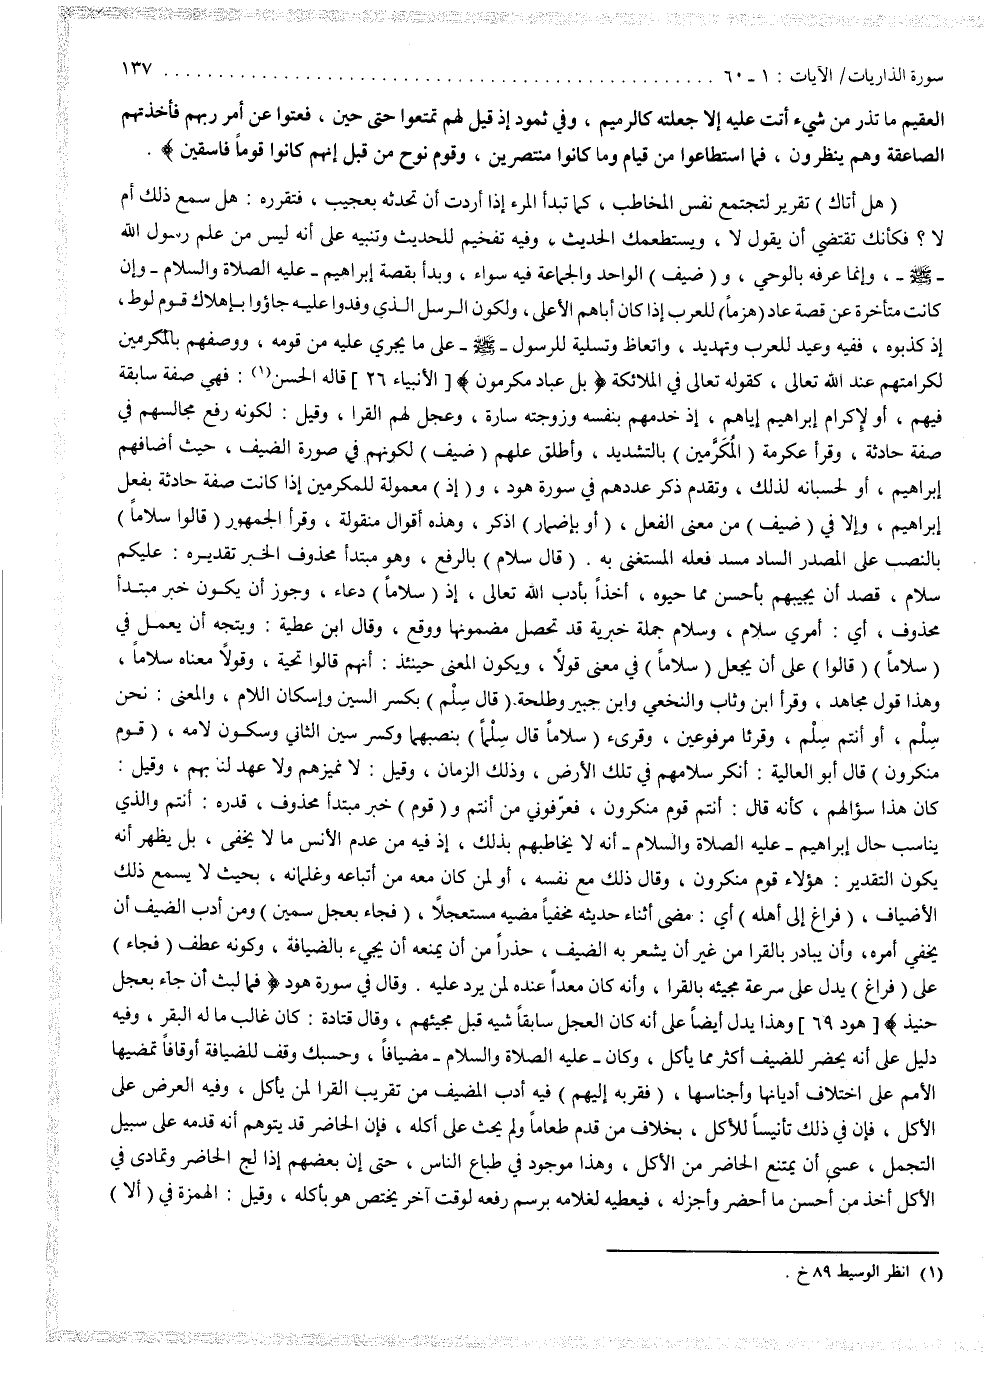 سورة الذاريات/ الآيات : ١ ـ ٦٠ ............................................ ١٣٧
العقيم ما تذر من شيء أتت عليه إلا جعلته كالرميم ، وفي ثمود إذ قيل لهم تمتعوا حتى حين ، فعتوا عن أمر ربهم فأخذتهم
الصاعقة وهم ينظرون ، فما استطاعوا من قيام وما كانوا منتصرين ، وقوم نوح من قبل إنهم كانوا قوماً فاسقين ﴾ .
( هل أتاك ) تقرير لتجتمع نفس المخاطب ، كما تبدأ المرء إذا أردت أن تحدثه بعجيب ، فتقرره : هل سمع ذلك أم
لا ؟ فكأنك تقتضي أن يقول لا ، ويستطعمك الحديث ، وفيه تفخيم للحديث وتنبيه على أنه ليس من علم رسول الله
ـ ﷺ ـ ، وإنما عرفه بالوحي ، و ( ضيف ) الواحد والجماعة فيه سواء ، وبدأ بقصة إبراهيم ـ عليه الصلاة والسلام ـ وإن
كانت متأخرة عن قصة عاد (هزماً) للعرب إذا كان أباهم الأعلى ، ولكون الرسل الذي وفدوا عليه جاؤوا بإهلاك قوم لوط ،
إذ كذبوه ، ففيه وعيد للعرب وتهديد ، واتعاظ وتسلية للرسول ـ ﷺ ـ على ما يجري عليه من قومه ، ووصفهم بالمكرمين
لكرامتهم عند الله تعالى ، كقوله تعالى في الملائكة ﴿ بل عباد مكرمون ﴾ [ الأنبياء ٢٦ ] قاله الحسن(١) : فهي صفة سابقة
فيهم ، أو لإكرام إبراهيم إياهم ، إذ خدمهم بنفسه وزوجته سارة ، وعجل لهم القرا ، وقيل : لكونه رفع مجالسهم في
صفة حادثة ، وقرأ عكرمة ( المُكَرَّمين ) بالتشديد ، وأطلق علهم ( ضيف ) لكونهم في صورة الضيف ، حيث أضافهم
إبراهيم ، أو لحسبانه لذلك ، وتقدم ذكر عددهم في سورة هود ، و ( إذ ) معمولة للمكرمين إذا كانت صفة حادثة بفعل
إبراهيم ، وإلا في ( ضيف ) من معنى الفعل ، ( أو بإضمار ) اذكر ، وهذه أقوال منقولة ، وقرأ الجمهور ( قالوا سلاماً )
بالنصب على المصدر الساد مسد فعله المستغنى به . ( قال سلام ) بالرفع ، وهو مبتدأ محذوف الخبر تقديره : عليكم
سلام ، قصد أن يجيبهم بأحسن مما حيوه ، أخذاً بأدب الله تعالى ، إذ ( سلاماً ) دعاء ، وجوز أن يكون خبر مبتدأ
محذوف ، أي : أمري سلام ، وسلام جملة خبرية قد تحصل مضمونها ووقع ، وقال ابن عطية : ويتجه أن يعمل في
( سلاماً ) ( قالوا ) على أن يجعل ( سلاماً ) في معنى قولاً ، ويكون المعنى حينئذ : أنهم قالوا تحية ، وقولاً معناه سلاماً ،
وهذا قول مجاهد ، وقرأ ابن وثاب والنخعي وابن جبير وطلحة. ( قال سِلْم ) بكسر السين وإسكان اللام ، والمعنى : نحن
سِلْم ، أو أنتم سِلْم ، وقرئا مرفوعين ، وقرىء ( سلاماً قال سِلْماً ) بنصبهما وكسر سين الثاني وسكون لامه ، ( قوم
منكرون ) قال أبو العالية : أنكر سلامهم في تلك الأرض ، وذلك الزمان ، وقيل : لا نميزهم ولا عهد لنا بهم ، وقيل :
كان هذا سؤالهم ، كأنه قال : أنتم قوم منكرون ، فعرّفوني من أنتم و ( قوم ) خبر مبتدأ محذوف ، قدره : أنتم والذي
يناسب حال إبراهيم ـ عليه الصلاة والسلام ـ أنه لا يخاطبهم بذلك ، إذ فيه من عدم الأنس ما لا يخفى ، بل يظهر أنه
يكون التقدير : هؤلاء قوم منكرون ، وقال ذلك مع نفسه ، أو لمن كان معه من أتباعه وغلمانه ، بحيث لا يسمع ذلك
الأضياف ، ( فراغ إلى أهله ) أي : مضى أثناء حديثه مخفياً مضيه مستعجلاً ، ( فجاء بعجل سمين ) ومن أدب الضيف أن
يخفي أمره، وأن يبادر بالقرا من غير أن يشعر به الضيف ، حذراً من أن يمنعه أن يجيء بالضيافة ، وكونه عطف ( فجاء )
على ( فراغ ) يدل على سرعة مجيئه بالقرا ، وأنه كان معداً عنده لمن يرد عليه . وقال في سورة هود ﴿ فما لبث أن جاء بعجل
حنيذ ﴾ [ هود ٦٩ ] وهذا يدل أيضاً على أنه كان العجل سابقاً شيه قبل مجيئهم ، وقال قتادة : كان غالب ما له البقر ، وفيه
دليل على أنه يحضر للضيف أكثر مما يأكل ، وكان ـ عليه الصلاة والسلام ـ مضيافاً ، وحسبك وقف للضيافة أوقافاً تمضيها
الأمم على اختلاف أديانها وأجناسها ، ( فقربه إليهم ) فيه أدب المضيف من تقريب القرا لمن يأكل ، وفيه العرض على
الأكل ، فإن في ذلك تأنيساً للأكل ، بخلاف من قدم طعاماً ولم يحث على أكله ، فإن الحاضر قد يتوهم أنه قدمه على سبيل
التجمل ، عسى أن يمتنع الحاضر من الأكل ، وهذا موجود في طباع الناس ، حتى إن بعضهم إذا لج الحاضر وتمادى في
الأكل أخذ من أحسن ما أحضر وأجزله ، فيعطيه لغلامه برسم رفعه لوقت آخر يختص هو بأكله ، وقيل : الهمزة في ( ألا )
(١) انظر الوسيط ٨٩ خ .